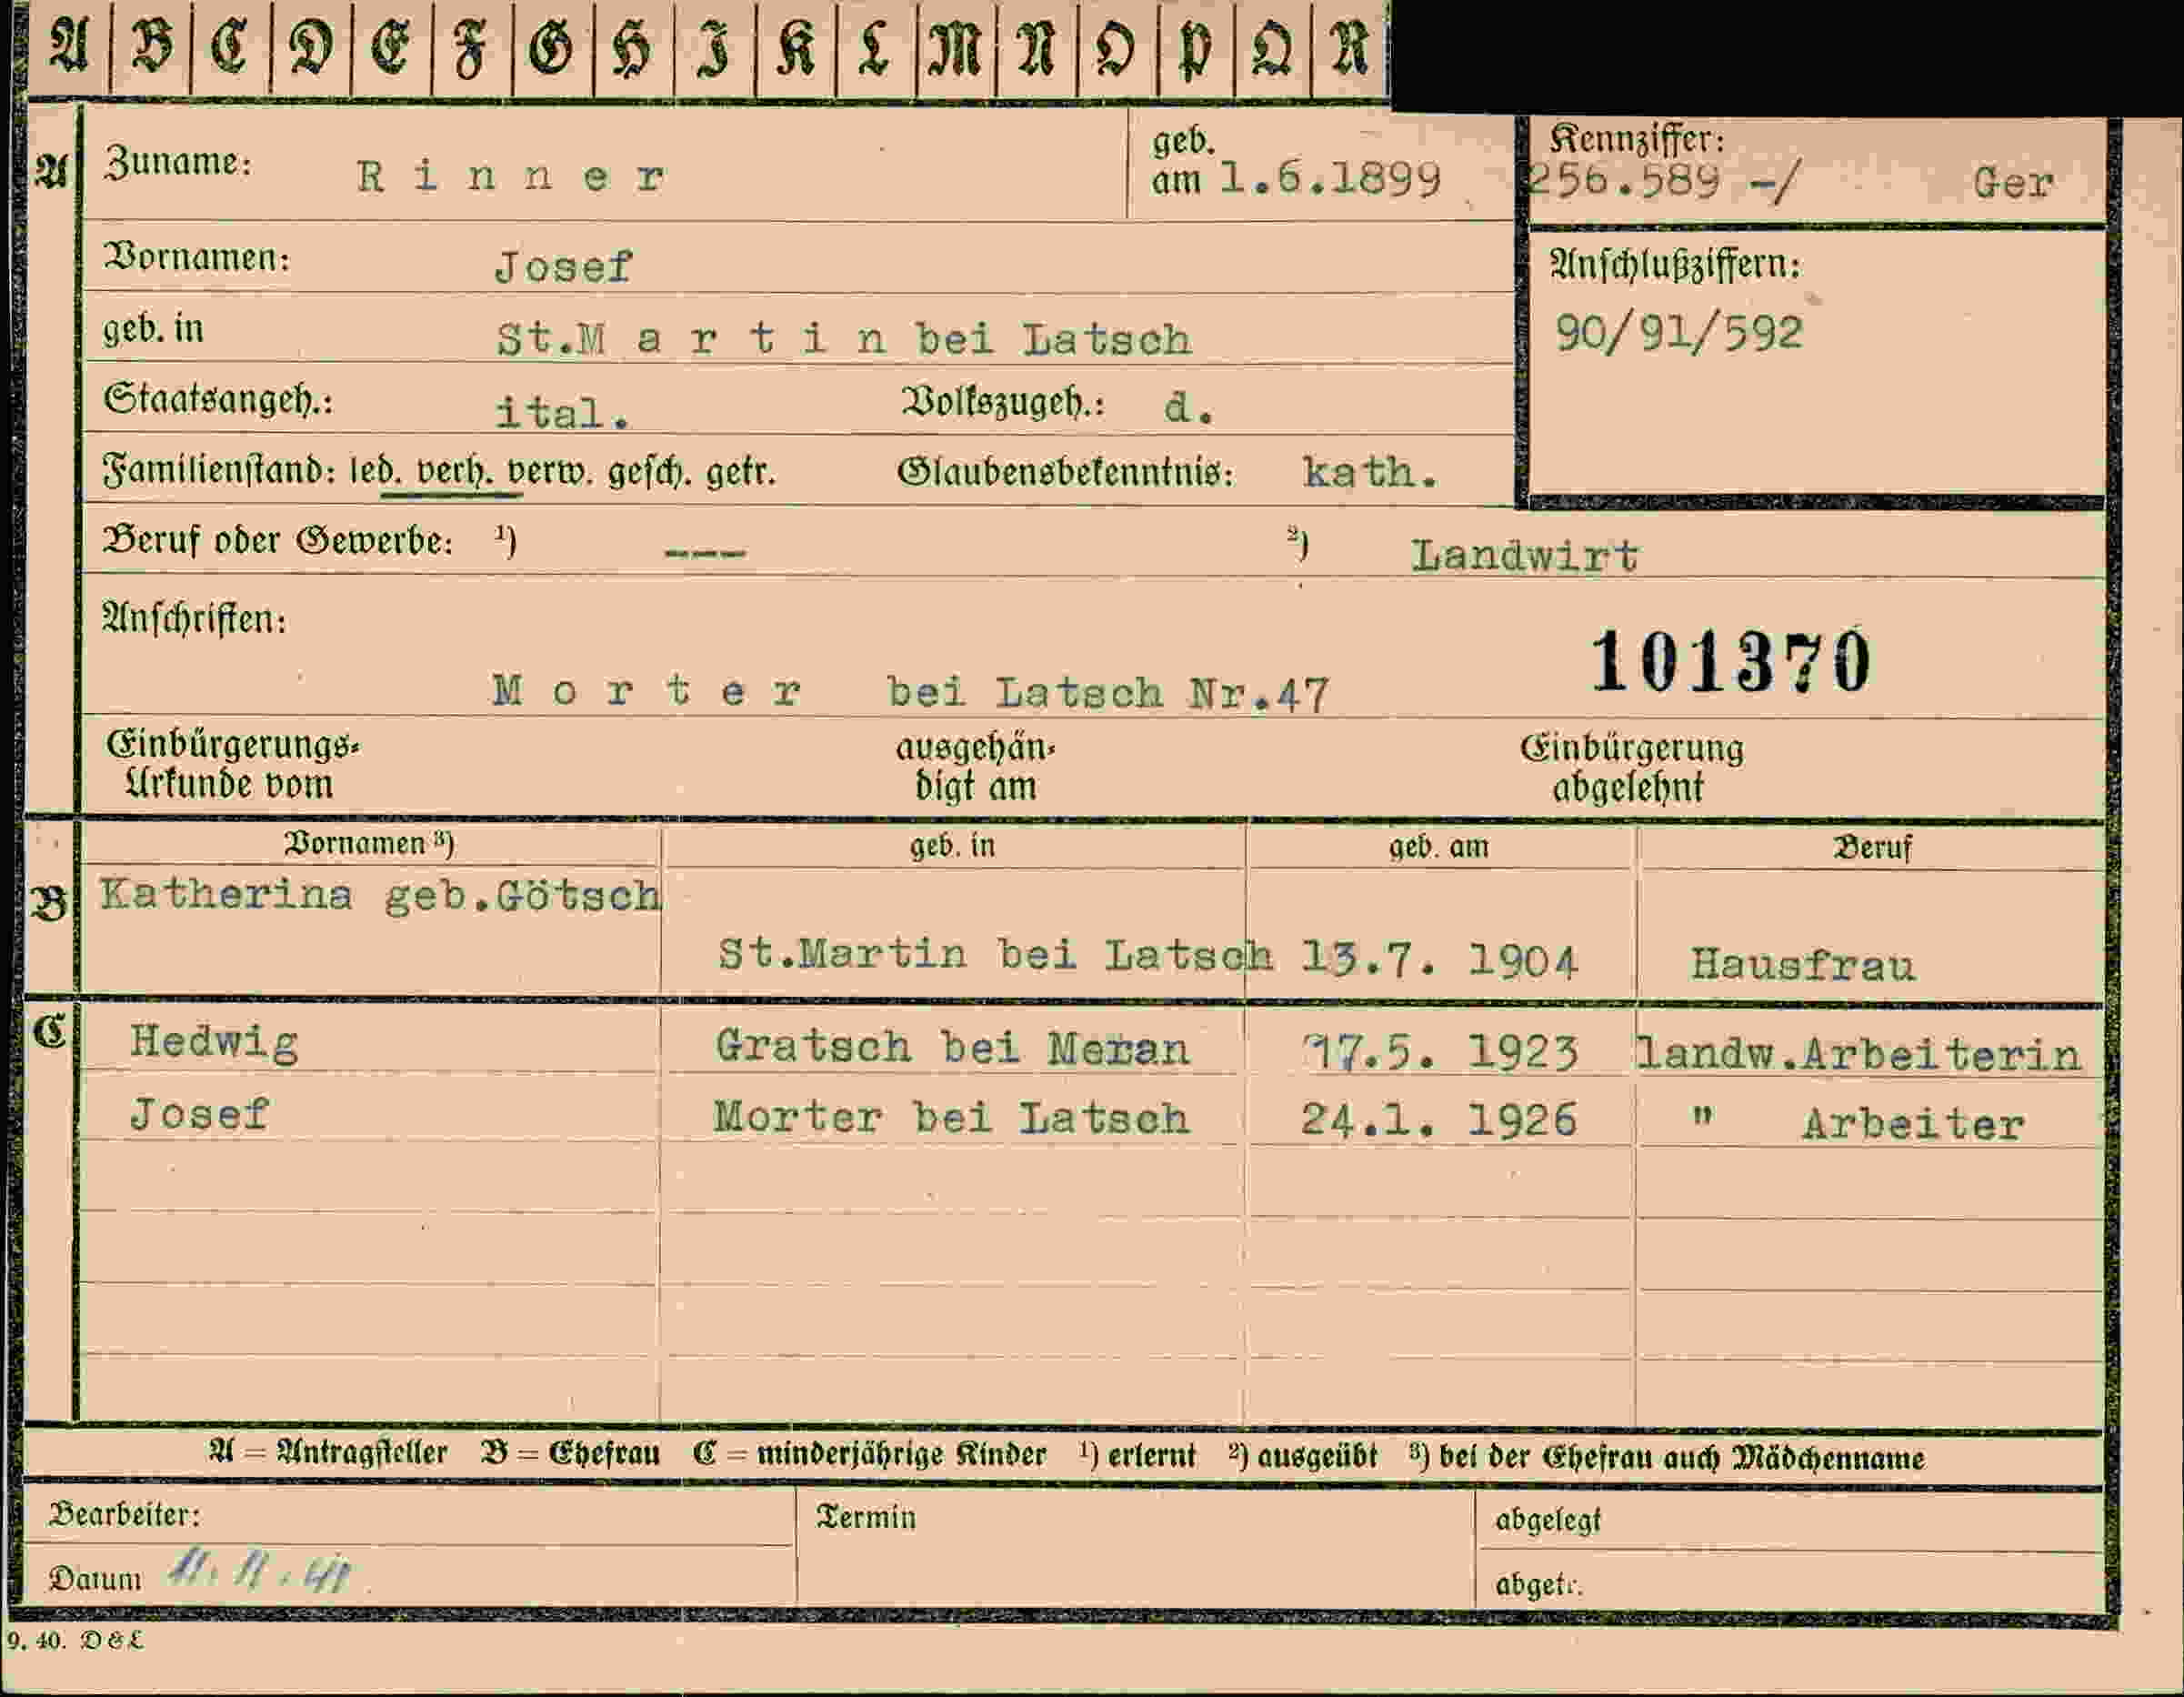 A B C D E F G H I K L M N O P Q R
A Zuname: R i n n e r geb. am 1.6.1899 Kennziffer: 256.589 -/ Ger
Vornamen: Josef Anschlußziffern:
geb. in St.M a r t i n bei Latsch 90/91/592
Staatsangeh.: ital. Volkszugeh.: d.
Familienstand: led. verh. verw. gesch. getr. Glaubensbekenntnis: kath.
Beruf oder Gewerbe: ¹) --- ²) Landwirt
Anschriften:
101370
M o r t e r bei Latsch Nr.47
Einbürgerungs- ausgehän- Einbürgerung
Urkunde vom digt am abgelehnt
Vornamen ³) geb. in geb. am Beruf
B Katherina geb.Götsch
St.Martin bei Latsch 13.7. 1904 Hausfrau
C Hedwig Gratsch bei Meran 17.5. 1923 landw.Arbeiterin
Josef Morter bei Latsch 24.1. 1926 " Arbeiter
A = Antragsteller B = Ehefrau C = minderjährige Kinder ¹) erlernt ²) ausgeübt ³) bei der Ehefrau auch Mädchenname
Bearbeiter: Termin abgelegt
Datum abgetr.
9. 40. D & L